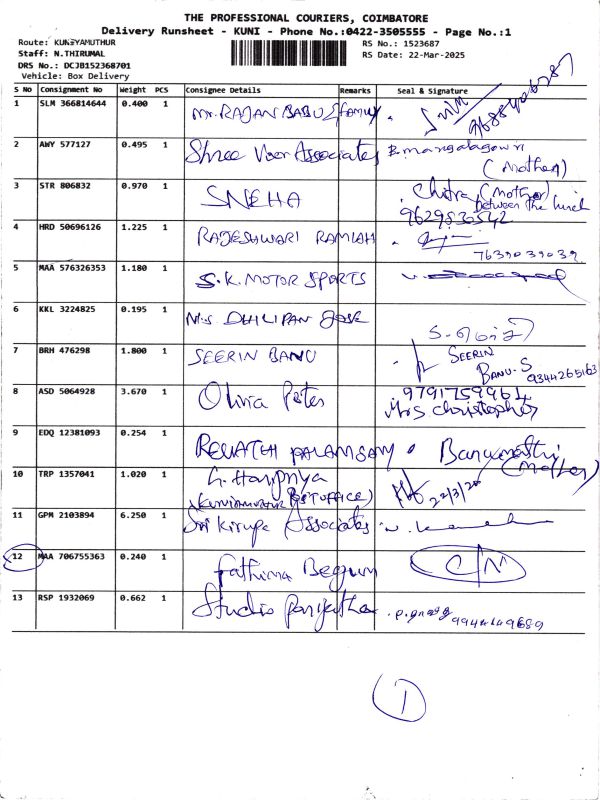 THE PROFESSIONAL COURIERS, COIMBATORE
Delivery Runsheet - KUNI - Phone No.:0422-3505555 - Page No.:1
Route: KUNIYAMUTHUR
Staff: N.THIRUMAL
DRS No.: DCJB152368701
Vehicle: Box Delivery
RS No.: 1523687
RS Date: 22-Mar-2025
S No Consignment No Weight PCS Consignee Details Remarks Seal & Signature
1 SLM 366814644 0.400 1 Mr. RAJAN BABU & family
2 AWY 577127 0.495 1 Shree Veer Associates B. mangalagowri
(Mother)
3 STR 806832 0.970 1 SNEHA Chitra (Mother)
between the lunch
9629830542
4 HRD 50696126 1.225 1 RAJESHWARI RAMIAH
7639039039
5 MAA 576326353 1.180 1 S.K. MOTOR SPORTS
6 KKL 3224825 0.195 1 M.S DHILIPAN JOSE
7 BRH 476298 1.800 1 SEERIN BANU SEERIN
BANU. S
9344265163
8 ASD 5064928 3.670 1 Olivia Peter 9791759961
Mrs christopher
9 EDQ 12381093 0.254 1 REVATHI PALANISAMY Banumathi
(Mother)
10 TRP 1357041 1.020 1 (KUNIAMUTHUR POST OFFICE) 22/3/20
11 GPM 2103894 6.250 1 Sri Kirupa Associates
12 MAA 706755363 0.240 1 Fathima Begum
13 RSP 1932069 0.662 1 Studio Parijatha
1